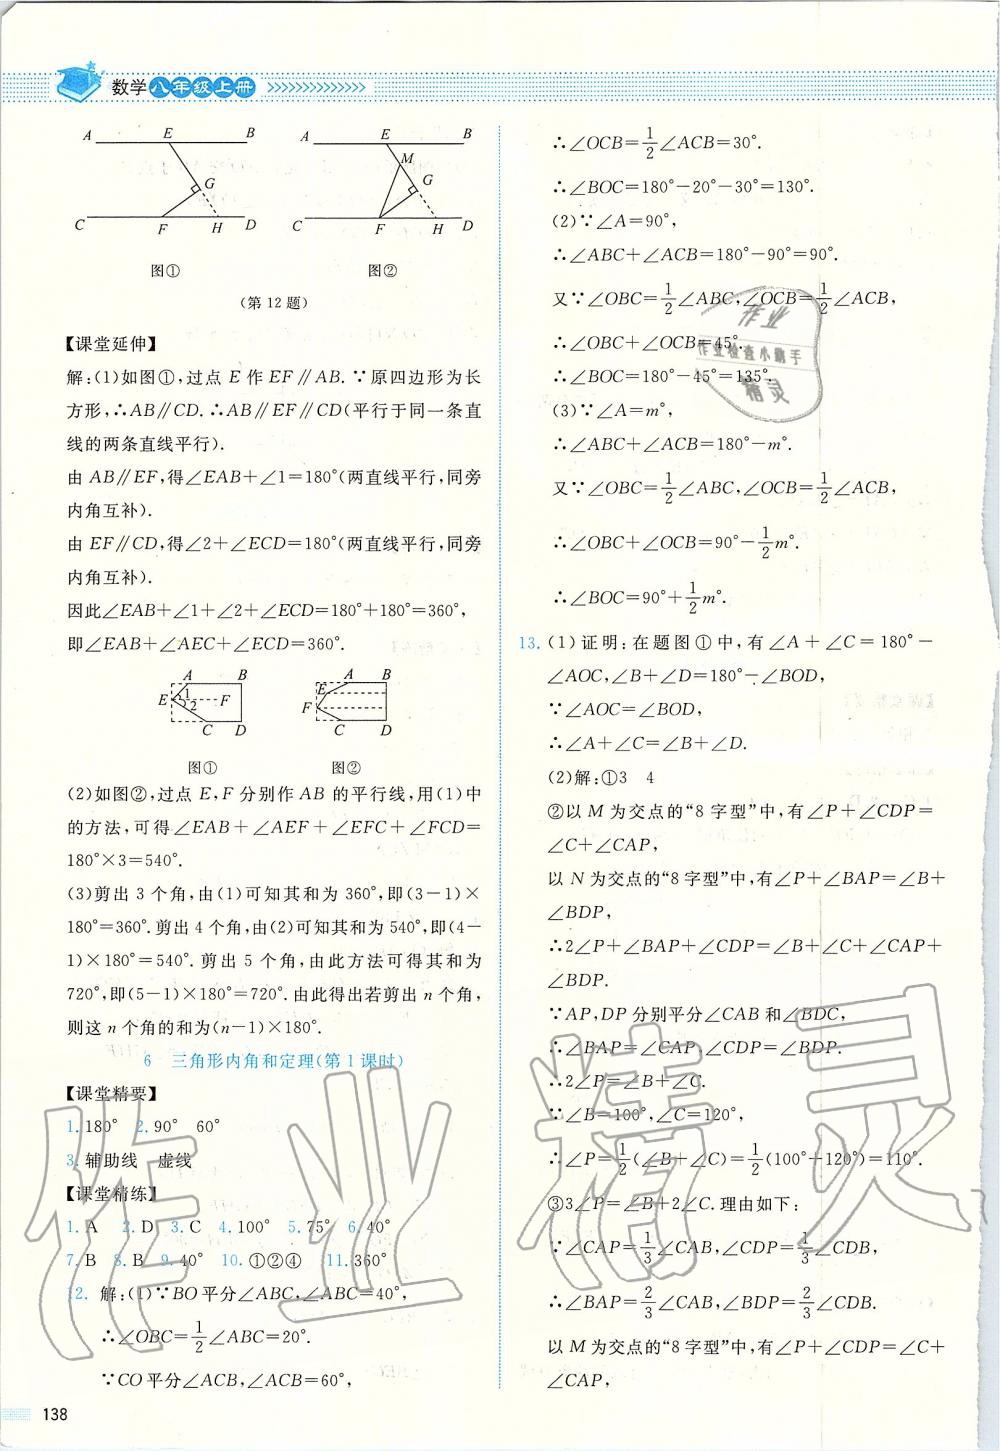 数学八年级上册
A E B
G
C F H D
图①
A E B
M
G
C F H D
图②
(第12题)
【课堂延伸】
解:(1)如图①,过点E作EF∥AB.∵原四边形为长
方形,∴AB∥CD.∴AB∥EF∥CD(平行于同一条直
线的两条直线平行).
由AB∥EF,得∠EAB+∠1=180°(两直线平行,同旁
内角互补).
由EF∥CD,得∠2+∠ECD=180°(两直线平行,同旁
内角互补).
因此∠EAB+∠1+∠2+∠ECD=180°+180°=360°,
即∠EAB+∠AEC+∠ECD=360°.
A B
E 1 F
2
C D
图①
A B
E
F
C D
图②
(2)如图②,过点E,F分别作AB的平行线,用(1)中
的方法,可得∠EAB+∠AEF+∠EFC+∠FCD=
180°×3=540°.
(3)剪出3个角,由(1)可知其和为360°,即(3-1)×
180°=360°.剪出4个角,由(2)可知其和为540°,即(4-
1)×180°=540°.剪出5个角,由此方法可得其和为
720°,即(5-1)×180°=720°.由此得出若剪出n个角,
则这n个角的和为(n-1)×180°.
6 三角形内角和定理(第1课时)
【课堂精要】
1.180° 2.90° 60°
3.辅助线 虚线
【课堂精练】
1.A 2.D 3.C 4.100° 5.75° 6.40°
7.B 8.B 9.40° 10.①②④ 11.360°
12. 解:(1)∵BO平分∠ABC,∠ABC=40°,
∴∠OBC=1/2∠ABC=20°.
∵CO平分∠ACB,∠ACB=60°,
138
∴∠OCB=1/2∠ACB=30°.
∴∠BOC=180°-20°-30°=130°.
(2)∵∠A=90°,
∴∠ABC+∠ACB=180°-90°=90°.
又∵∠OBC=1/2∠ABC,∠OCB=1/2∠ACB,
∴∠OBC+∠OCB=45°.
∴∠BOC=180°-45°=135°.
(3)∵∠A=m°,
∴∠ABC+∠ACB=180°-m°.
又∵∠OBC=1/2∠ABC,∠OCB=1/2∠ACB,
∴∠OBC+∠OCB=90°-1/2m°.
∴∠BOC=90°+1/2m°.
13.(1)证明:在题图①中,有∠A+∠C=180°-
∠AOC,∠B+∠D=180°-∠BOD,
∵∠AOC=∠BOD,
∴∠A+∠C=∠B+∠D.
(2)解:①3 4
②以M为交点的“8字型”中,有∠P+∠CDP=
∠C+∠CAP,
以N为交点的“8字型”中,有∠P+∠BAP=∠B+
∠BDP,
∴2∠P+∠BAP+∠CDP=∠B+∠C+∠CAP+
∠BDP.
∵AP,DP分别平分∠CAB和∠BDC,
∴∠BAP=∠CAP,∠CDP=∠BDP.
∴2∠P=∠B+∠C.
∵∠B=100°,∠C=120°,
∴∠P=1/2(∠B+∠C)=1/2(100°+120°)=110°.
③3∠P=∠B+2∠C.理由如下:
∵∠CAP=1/3∠CAB,∠CDP=1/3∠CDB,
∴∠BAP=2/3∠CAB,∠BDP=2/3∠CDB.
以M为交点的“8字型”中,有∠P+∠CDP=∠C+
∠CAP,
作业
作业检查小助手
精灵
作业精灵